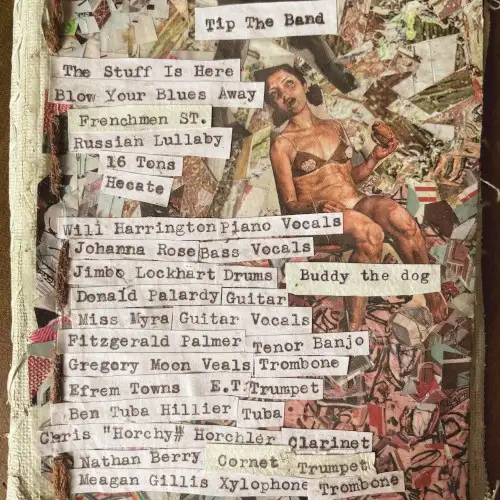 Tip The Band
The Stuff Is Here
Blow Your Blues Away
Frenchmen ST.
Russian Lullaby
16 Tons
Hecate
Will Harrington Piano Vocals
Johanna Rose Bass Vocals
Jimbo Lockhart Drums
Buddy the dog
Donald Palardy Guitar
Miss Myra Guitar Vocals
Fitzgerald Palmer Tenor Banjo
Gregory Moon Veals Trombone
Efrem Towns E.T. Trumpet
Ben Tuba Hillier Tuba
Chris "Horchy# Horchler Clarinet
Nathan Berry Cornet Trumpet
Meagan Gillis Xylophone Trombone